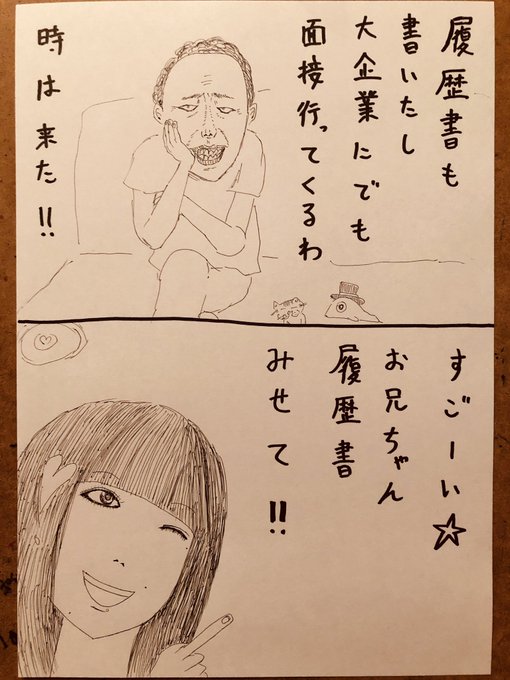 履歴書も
書いたし
大企業にでも
面接行ってくるわ
時は来た!!
すごーい☆
お兄ちゃん
履歴書
みせて!!